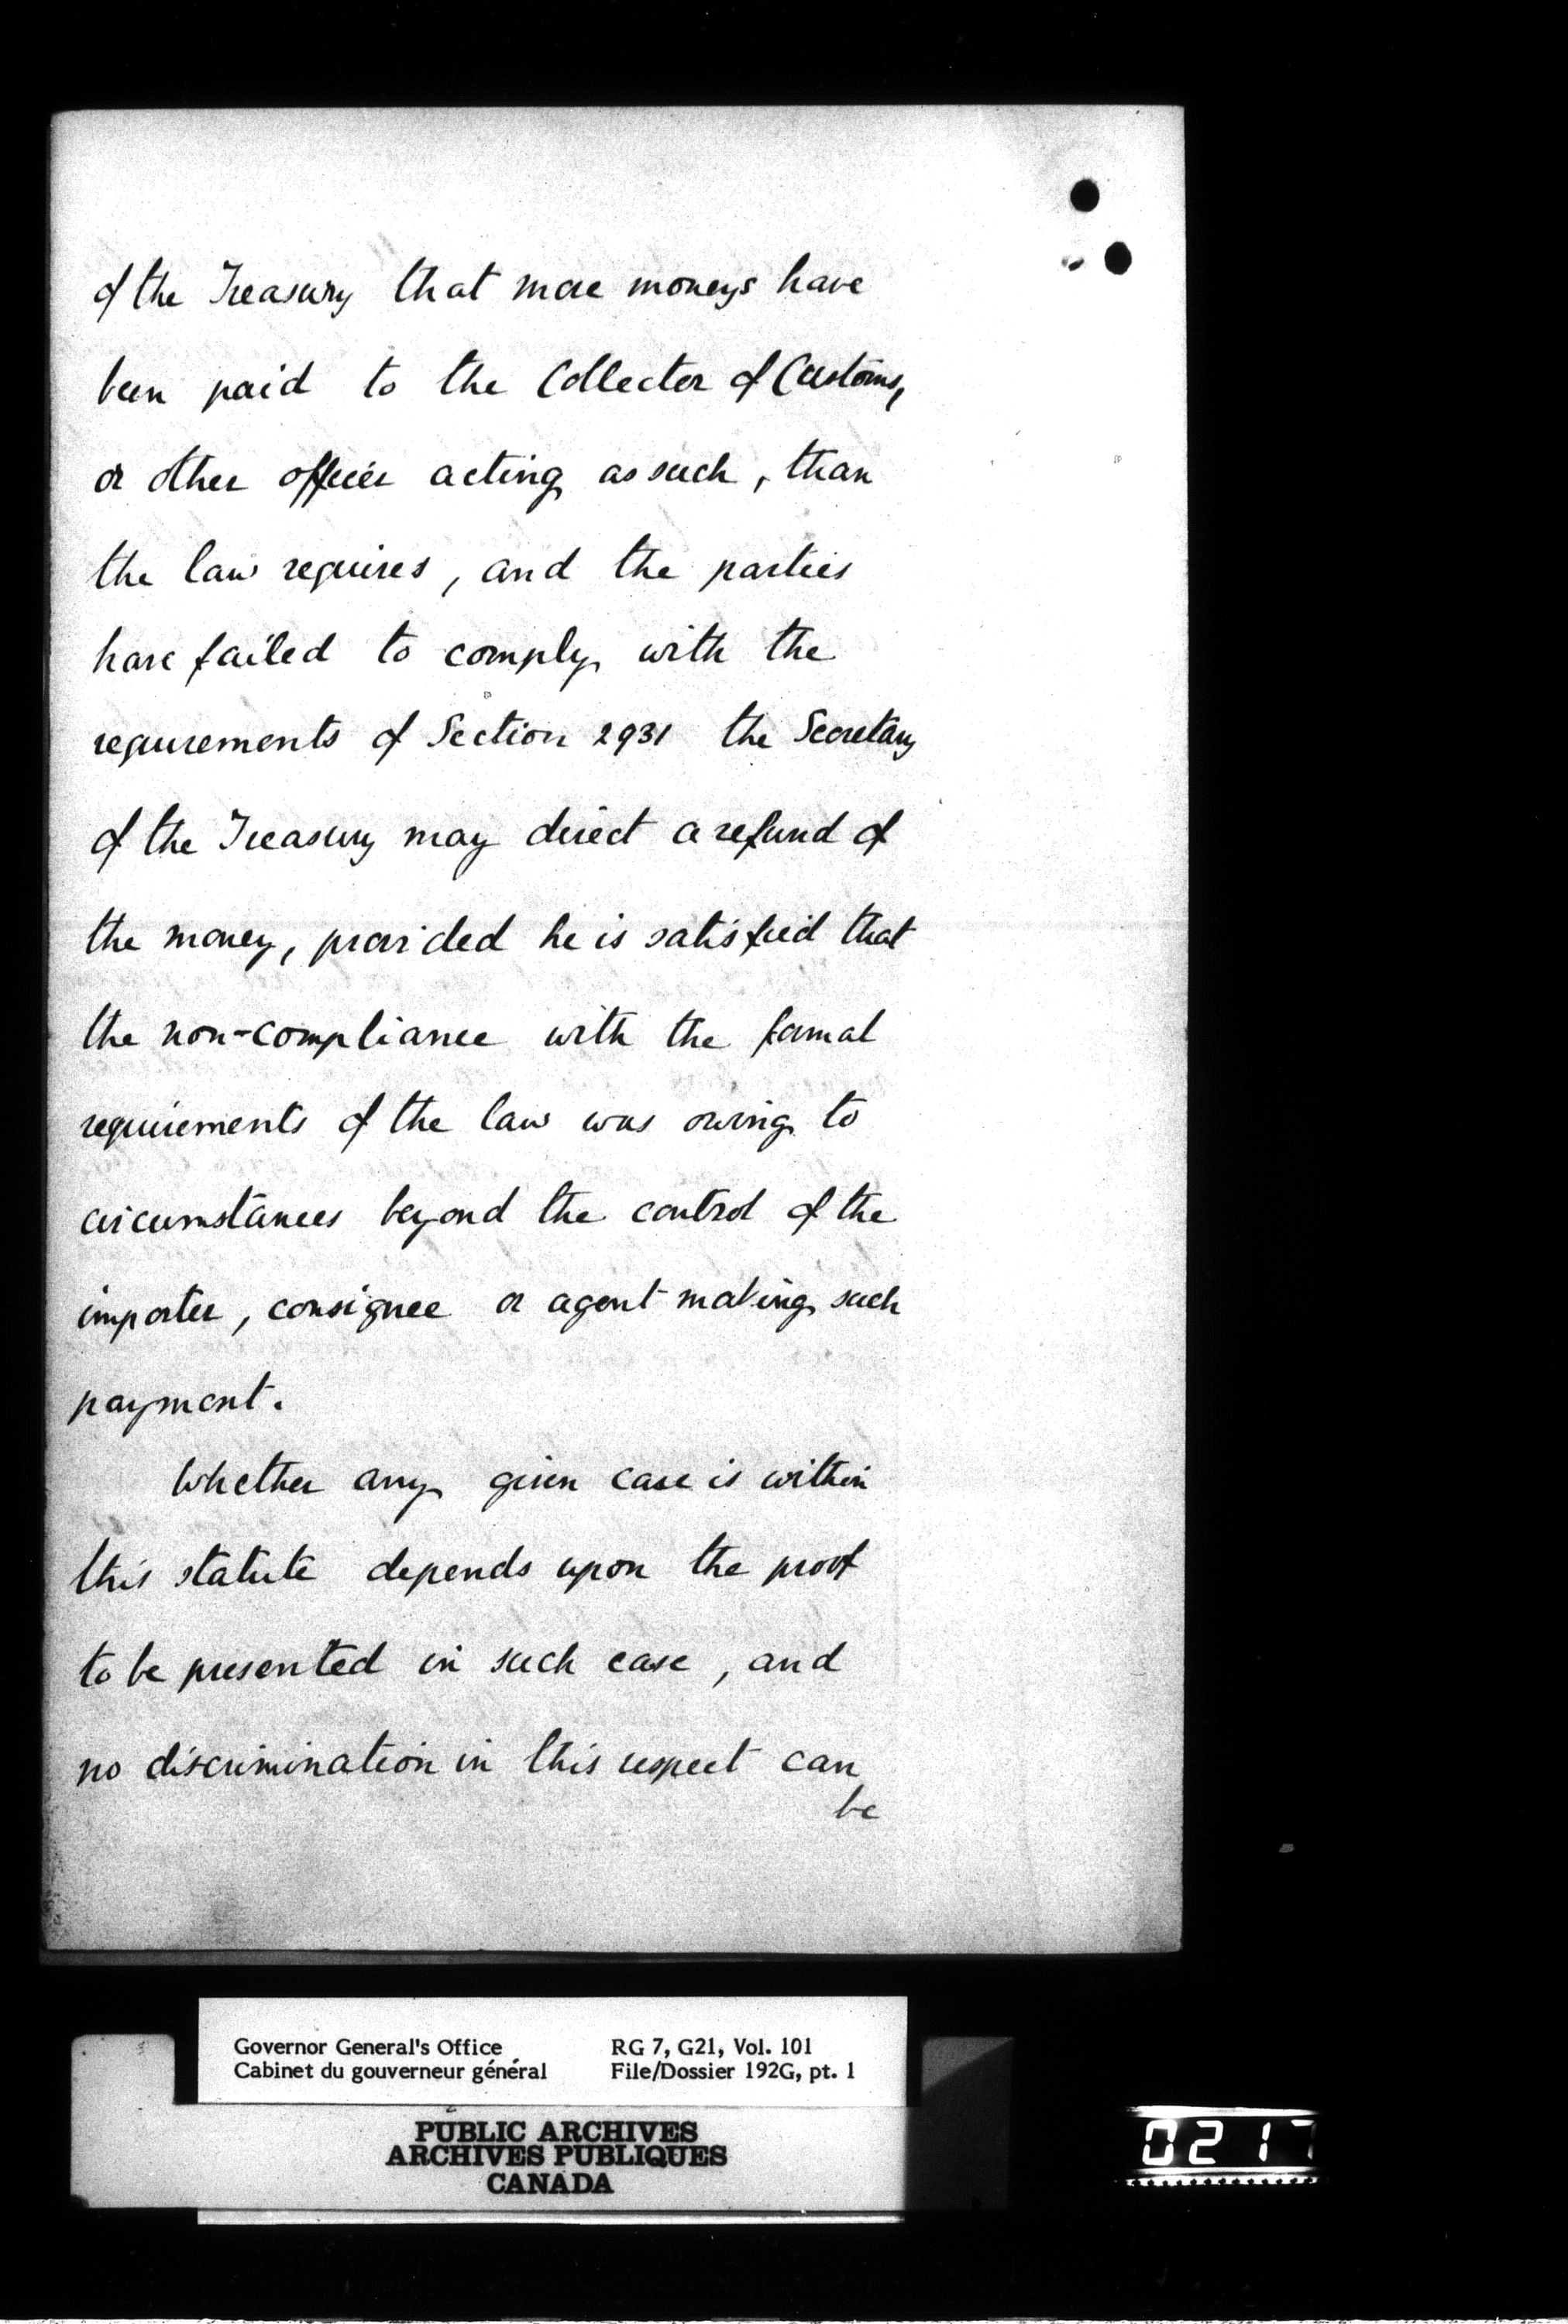 of the Treasury that more moneys have
been paid to the Collector of Customs,
or other officer acting as such, than
the law requires, and the parties
have failed to comply with the
requirements of Section 2931 the Secretary
of the Treasury may direct a refund of
the money, provided he is satisfied that
the non-compliance with the formal
requirements of the law was owing to
circumstances beyond the control of the
importer, consignee or agent making such
payment.
Whether any given case is within
this statute depends upon the proof
to be presented in such case, and
no discrimination in this respect can
be
Governor General's Office RG 7, G21, Vol. 101
Cabinet du gouverneur général File/Dossier 192G, pt. 1
PUBLIC ARCHIVES
ARCHIVES PUBLIQUES
CANADA
0217